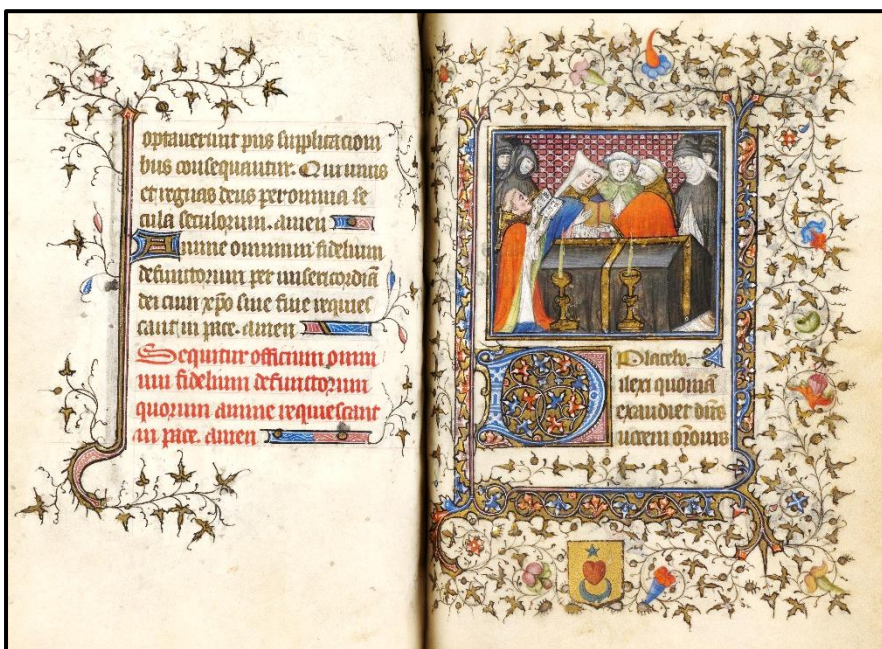 optaverunt piis supplicacioni
bus consequantur. Qui vivis
et regnas deus per omnia se
cula seculorum. amen
Anime omnium fidelium
defunctorum per misericordiã
dei cum xp̃o sine fine requies
cant in pace. amen
Sequitur officium omni
um fidelium defunctorum
quorum anime requiescant
in pace. amen
Placebo
Dilexi quoniã
exaudiet dñs
vocem orõnis